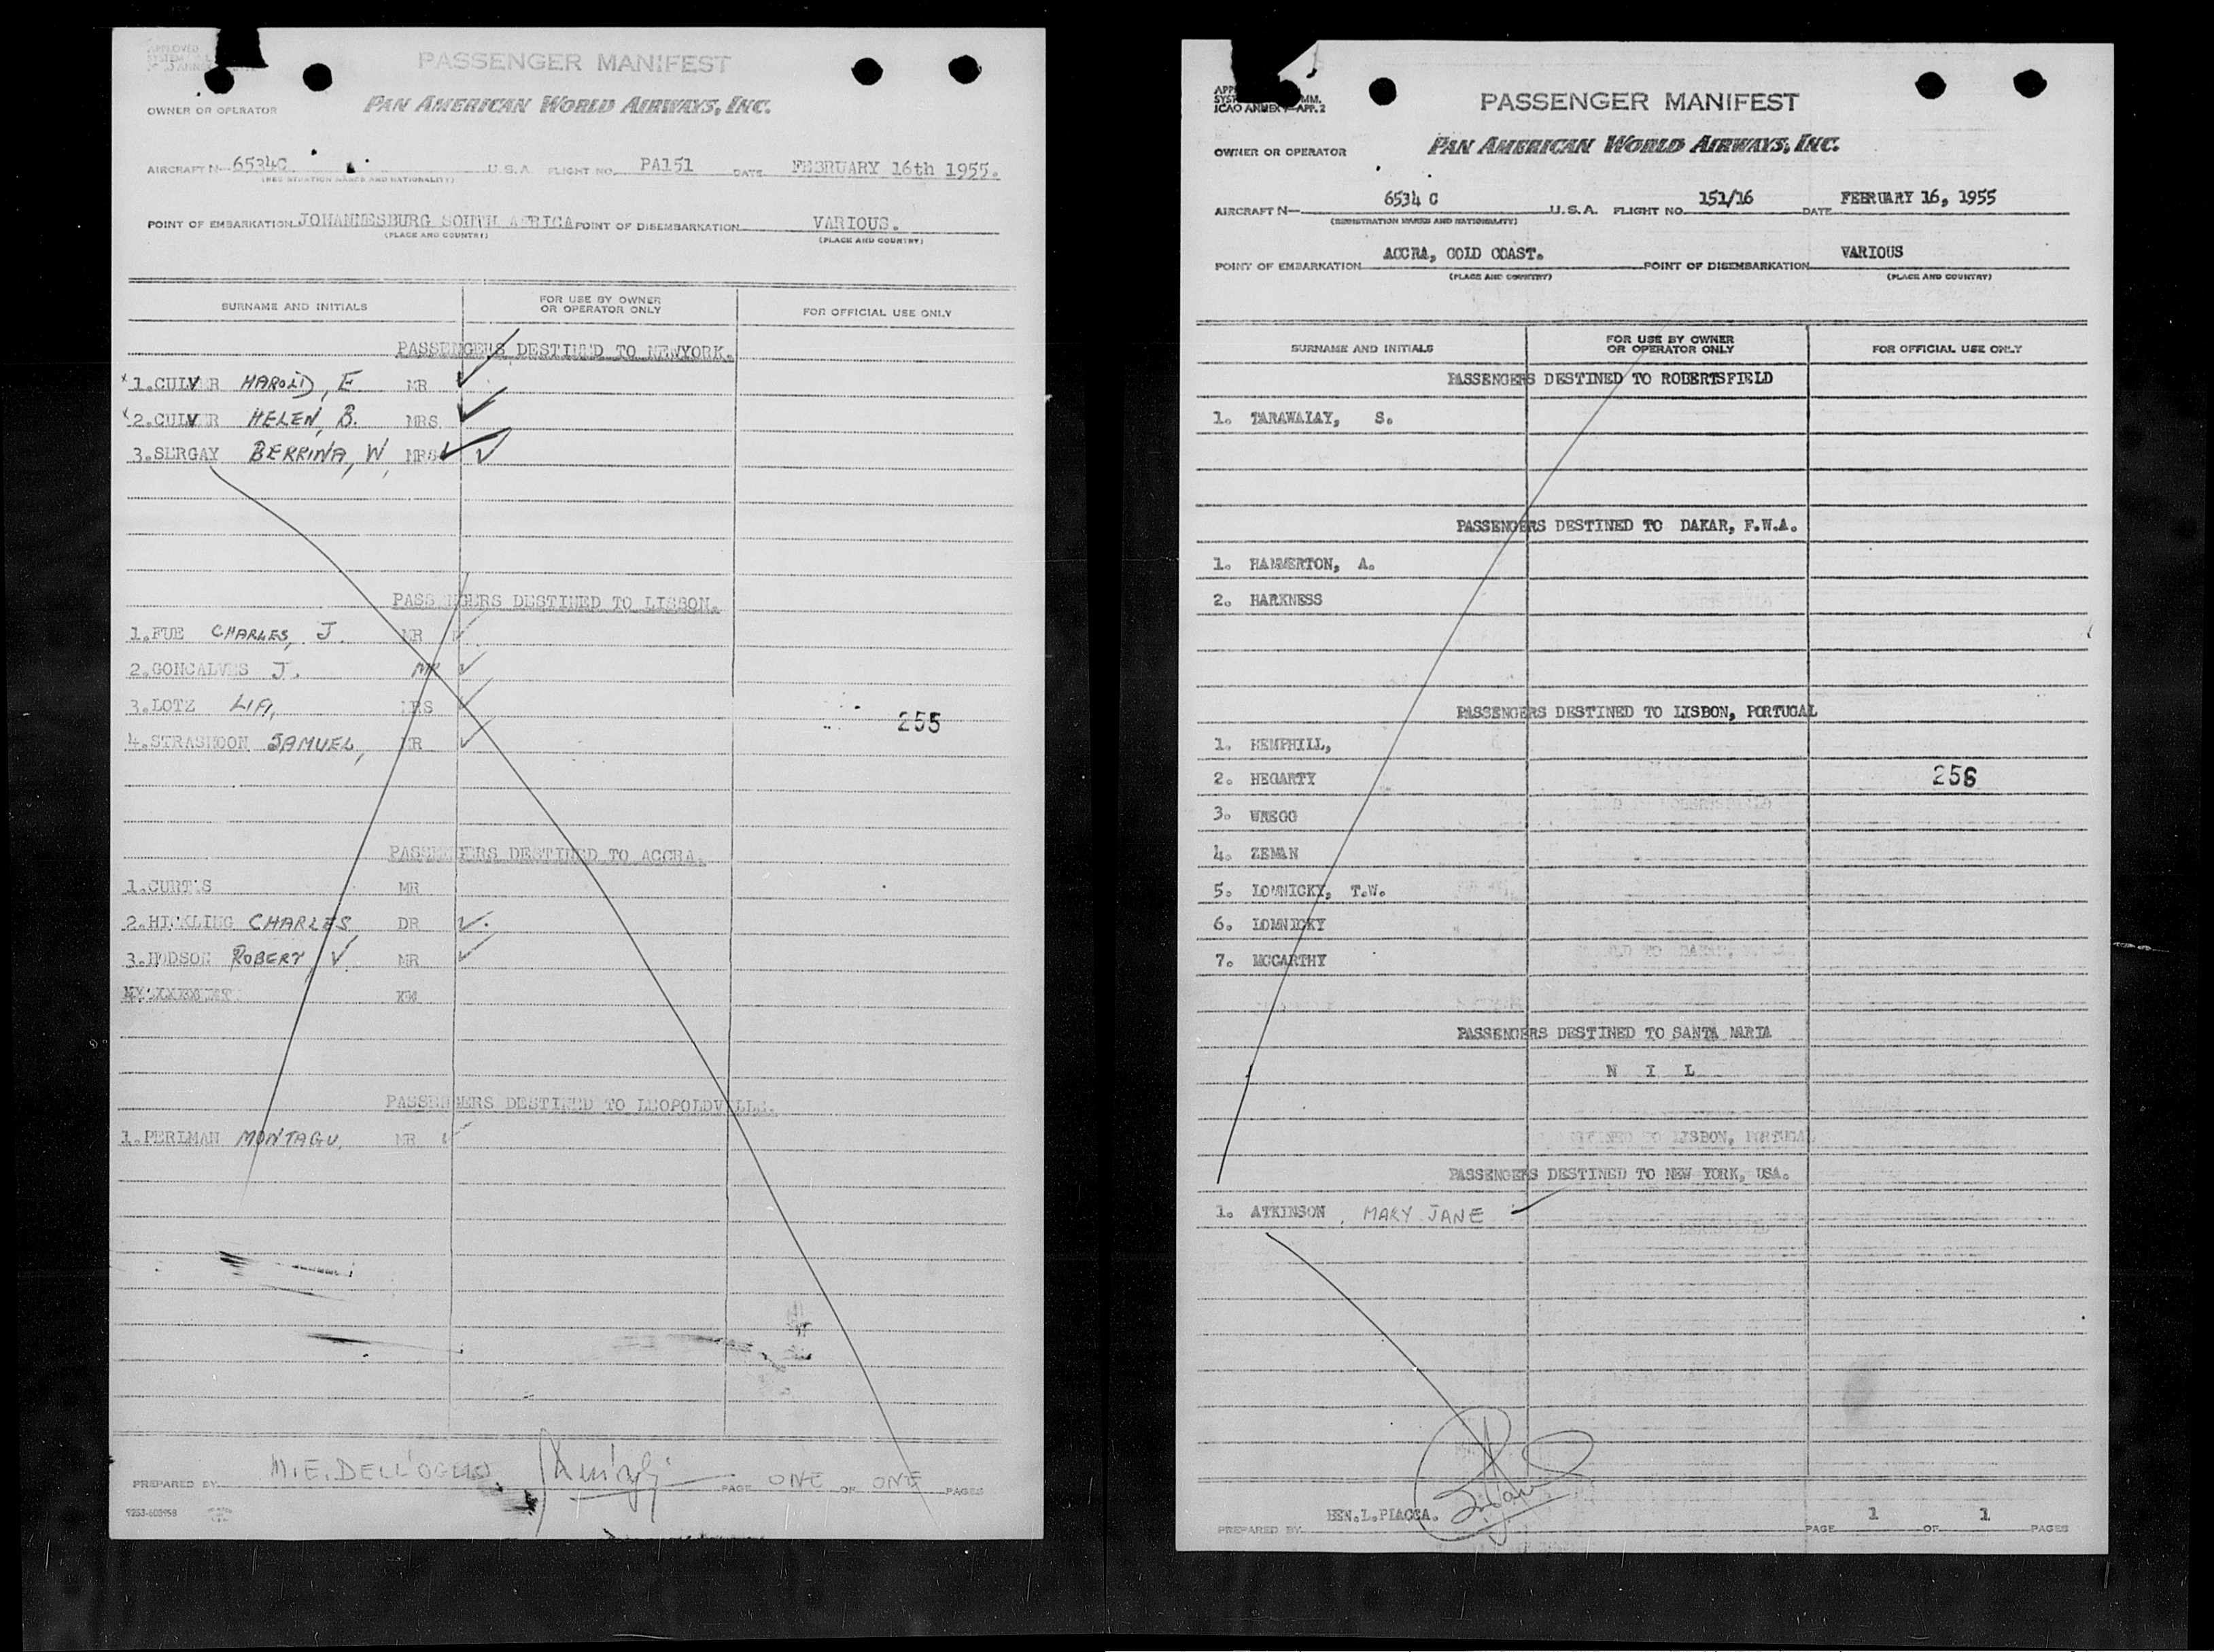 APPROVED
PASSENGER MANIFEST
OWNER OR OPERATOR PAN AMERICAN WORLD AIRWAYS, INC.
AIRCRAFT N-6534C U.S.A. FLIGHT NO. PA151 DATE FEBRUARY 16th 1955.
POINT OF EMBARKATION JOHANNESBURG SOUTH AFRICA POINT OF DISEMBARKATION VARIOUS.
(PLACE AND COUNTRY) (PLACE AND COUNTRY)
SURNAME AND INITIALS FOR USE BY OWNER OR OPERATOR ONLY FOR OFFICIAL USE ONLY
PASSENGERS DESTINED TO NEWYORK.
1.CULVER HAROLD, E. MR
2.CULVER HELEN, B. MRS
3.SERGAY BERRINA, W, MRS
PASSENGERS DESTINED TO LISBON.
1.FUE CHARLES, J. MR
2.GONCALVES J. MR
3.LOTZ LIA, MRS
255
4.STRASHOON SAMUEL, MR
PASSENGERS DESTINED TO ACCRA.
1.CURTIS MR
2.HICKLING CHARLES DR
3.HODSON ROBERT, V. MR
PASSENGERS DESTINED TO LEOPOLDVILLE.
1.PERLMAN MONTAGU. MR
PREPARED BY M.E. DELL'OGLIO PAGE ONE OF ONE PAGES
9253-600958
ICAO ANNEX 9—APP. 2
PASSENGER MANIFEST
OWNER OR OPERATOR PAN AMERICAN WORLD AIRWAYS, INC.
AIRCRAFT N— 6534 C U.S.A. FLIGHT NO. 151/16 DATE FEBRUARY 16, 1955
(REGISTRATION MARKS AND NATIONALITY)
POINT OF EMBARKATION ACCRA, GOLD COAST. POINT OF DISEMBARKATION VARIOUS
(PLACE AND COUNTRY) (PLACE AND COUNTRY)
SURNAME AND INITIALS FOR USE BY OWNER OR OPERATOR ONLY FOR OFFICIAL USE ONLY
PASSENGERS DESTINED TO ROBERTSFIELD
1. TARAWALAY, S.
PASSENGERS DESTINED TO DAKAR, F.W.A.
1. HAMMERTON, A.
2. HARKNESS
PASSENGERS DESTINED TO LISBON, PORTUGAL
1. HEMPHILL,
2. HEGARTY 256
3. WREGG
4. ZEMAN
5. LOMNICKY, T.W.
6. LOMNICKY
7. MCCARTHY
PASSENGERS DESTINED TO SANTA MARIA
N I L
PASSENGERS DESTINED TO NEW YORK, USA.
1. ATKINSON, MARY JANE
PREPARED BY BEN.L.PIACCA. PAGE 1 OF 1 PAGES